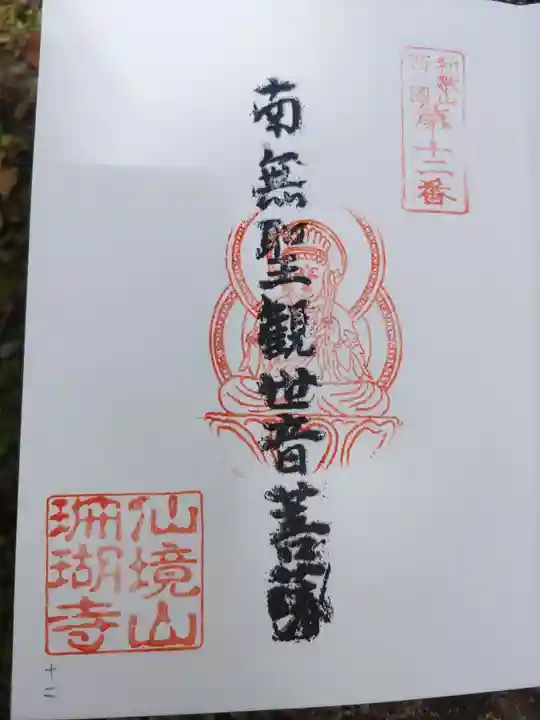 西国
第十二番
南無聖観世音菩薩
仙境山
珊瑚寺
十二